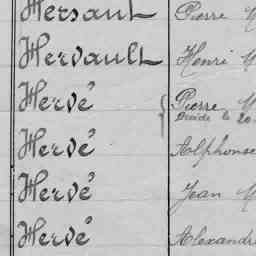 Hersault Pierre M
Hervault Henri M
Hervé Pierre M
Décidé le 20
Hervé Alphonse
Hervé Jean M
Hervé Alexandre